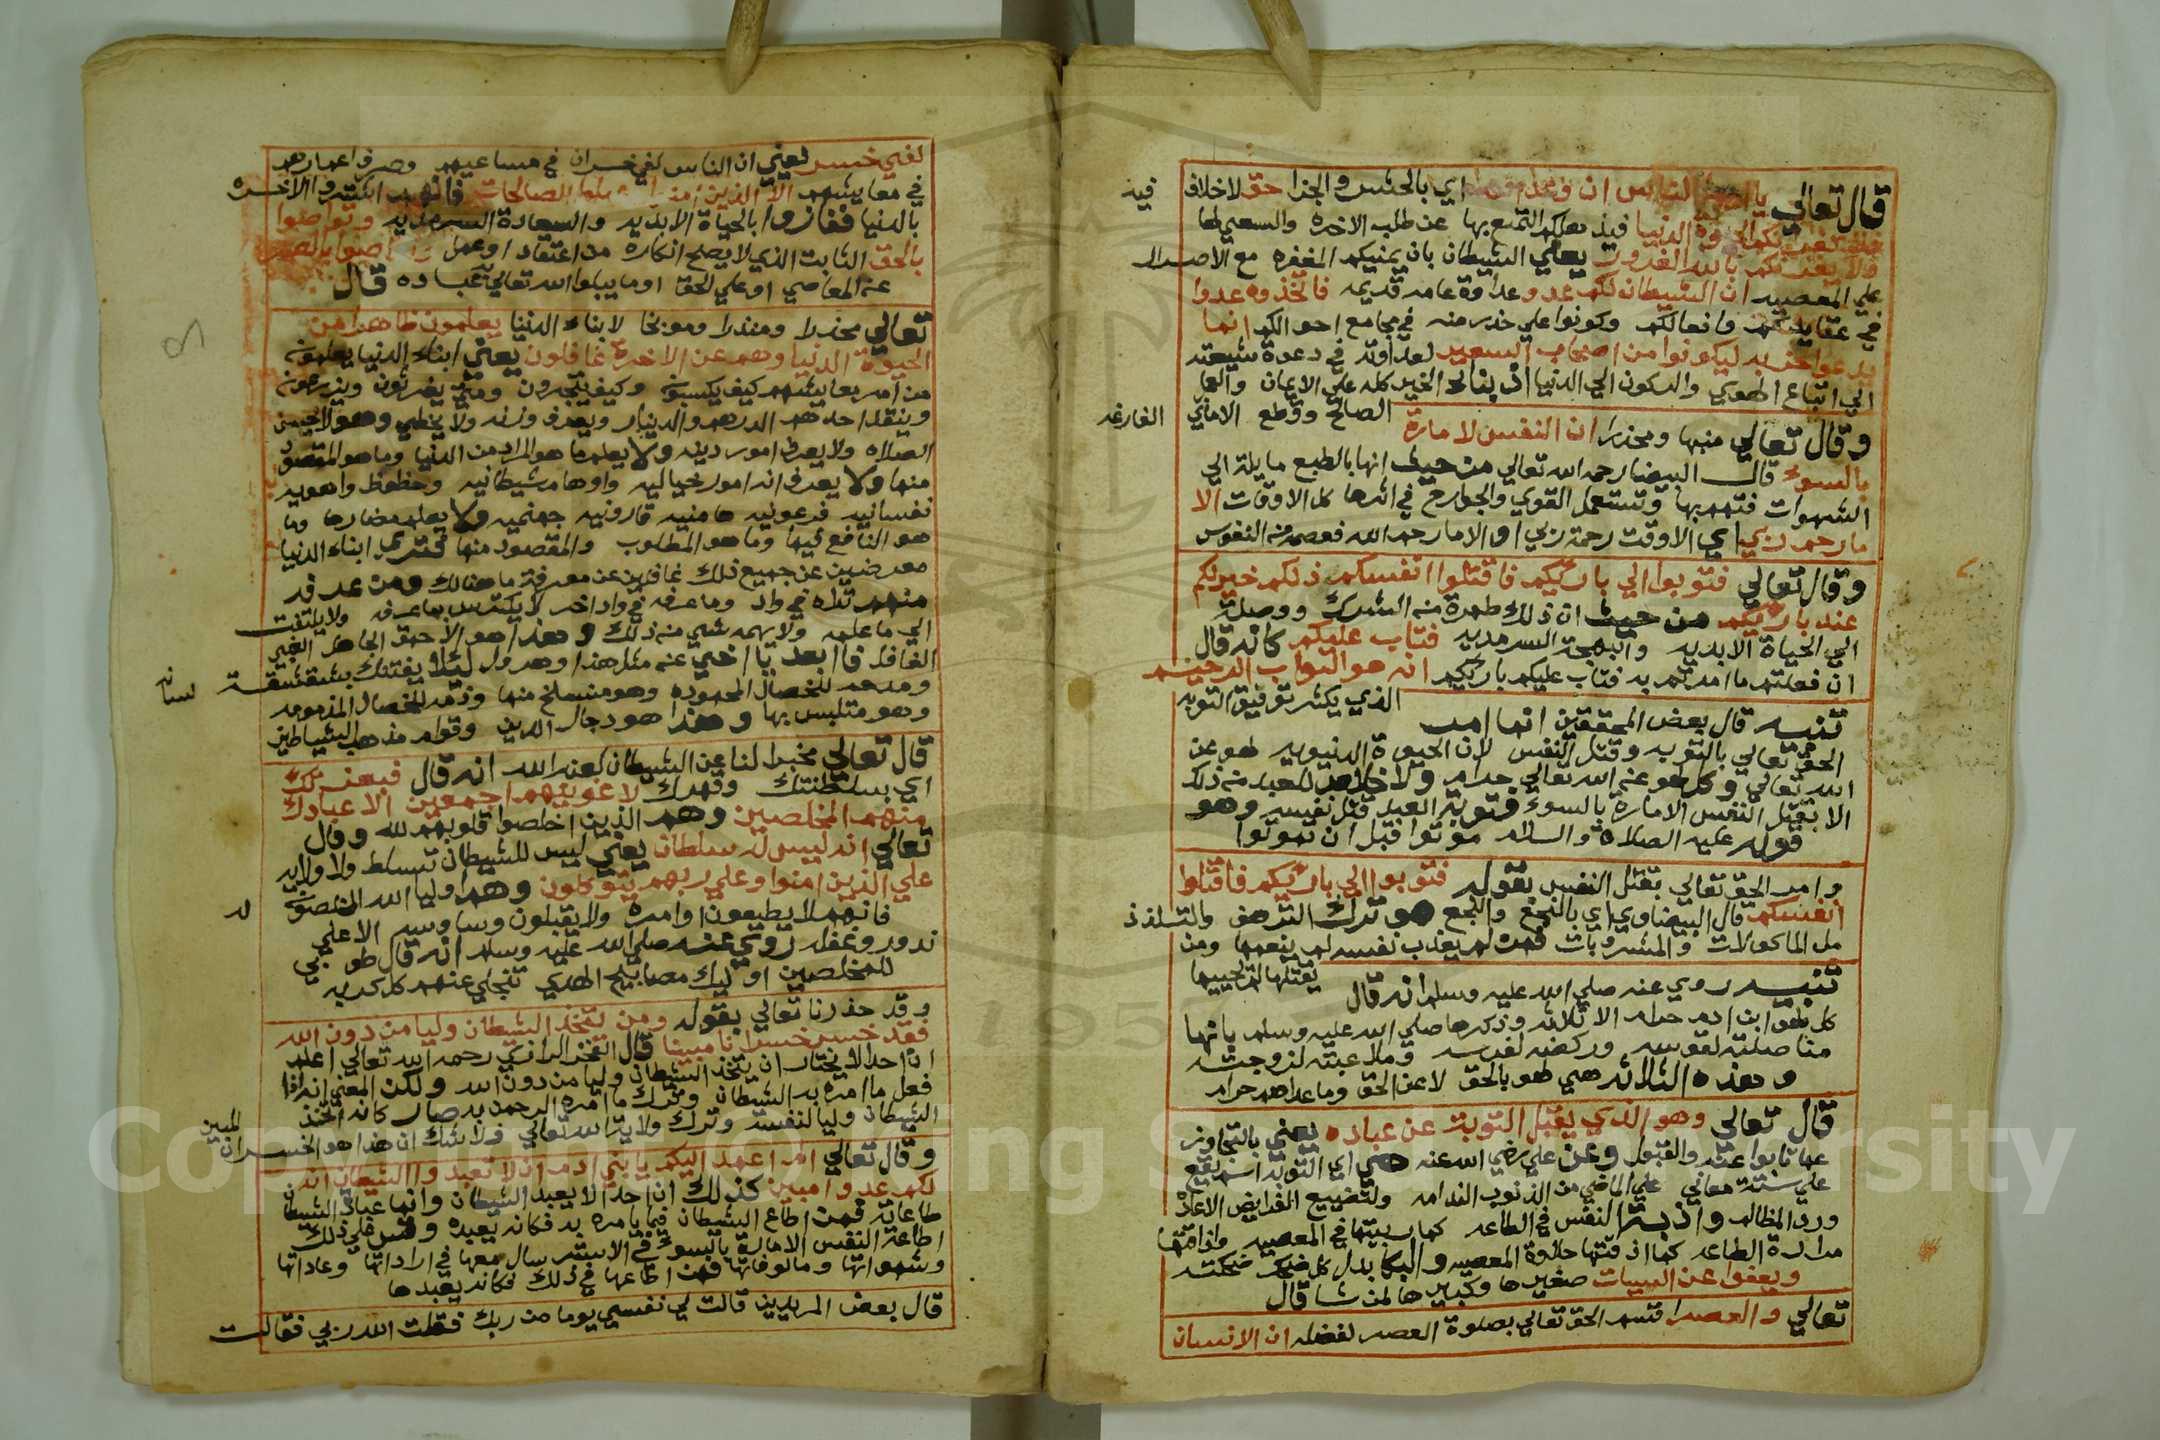 قال تعالي يا ايها الناس ان وعد الله اي بالحشر والجزا حق لاخلاف فيه
فلا تغرنكم الحيوة الدنيا فيذهلكم التمتع بها عن طلب الاخره والسعي لها
فلا يغرنكم بالله الغرور يعني الشيطان بان يمنيكم المغفره مع الاصرار
علي المعصيه ان الشيطان لكم عدو عداوة عامه قديمه فاتخذوه عدوا
في عقايدكم وافعالكم وكونوا علي حذر منه في مجامع احوالكم انما
يدعوا حزبه ليكونوا من اصحاب السعير لعداوته في دعوة شيعته
الي اتباع الهوي والركون الي الدنيا اذ بناء الخير كله علي الايمان والعمل
الصالح وقطع الاماني الفارغه
وقال تعالي منبها ومحذرا ان النفس لامارة
بالسوء قال البيضا رحمه الله تعالي من حيث انها بالطبع مايلة الي
الشهوات فتهم بها وتستعمل القوي والجوارح في اثرها كل الاوقات الا
ما رحم ربي اي الا وقت رحمة ربي او الا ما رحمه الله فعصمه من النفوس
وقال تعالي فتوبوا الي بارئكم فاقتلوا انفسكم ذلكم خير لكم
عند بارئكم من حيث ان ذلك طهرة من الشرك ووصلة
الي الحياة الابديه والبهجة السرمديه فتاب عليكم كانه قال
ان فعلتم ما امرتم به فتاب عليكم باريكم انه هو التواب الرحيم
الذي يكثر توفيق التوبه
تنبيه قال بعض المحققين انما امر
الحق تعالي بالتوبه وقتل النفس لان الحيوة الدنيويه لهو عن
الله تعالي وكل لهو عن الله تعالي حرام ولا خلاص للعبد من ذلك
الا بقتل النفس الامارة بالسوء فتوبة العبد قتل نفسه وهو
قوله عليه الصلاة والسلام موتوا قبل ان تموتوا
وامر الحق تعالي بقتل النفس بقوله فتوبوا الي بارئكم فاقتلوا
انفسكم قال البيضاوي اي بالبخع والبخع هو ترك الترفه والتلذذ
من الماكولات والمشروبات فمن لم يعذب نفسه لم ينعمها ومن
يقتلها لم يحييها
تنبيه روي عنه صلي الله عليه وسلم انه قال
كل لهو ابن ادم حرام الا ثلاثه وذكرها صلي الله عليه وسلم بانها
مناصلته لقوسه وركضه لفرسه وملاعبته لزوجته
وهذه الثلاثه هي لهو بالحق لا عن الحق وما عداهم حرام
قال تعالي وهو الذي يقبل التوبة عن عباده يعني بالتجاوز
عما تابوا عنه والقبول وعن علي رضي الله عنه هي اي التوبه اسم يقع
علي ستة معاني علي الماضي من الذنوب الندامه ولتضييع الفرايض الاعادة
ورد المظالم واذابة النفس في الطاعه كما ربيتها في المعصيه واذاقتها
مرارة الطاعه كما اذقتها حلاوة المعصيه والبكا بدل كل ضحك ضحكته
ويعفوا عن السيئات صغيرها وكبيرها لمن يشا قال
تعالي والعصر قسم الحق تعالي بصلوة العصر لفضله ان الانسان
لفي خسر يعني ان الناس لفي خسران في مساعيهم وصرف اعمارهم
في معايشهم الا الذين امنوا وعملوا الصالحات فانهم اشتروا الاخره
بالدنيا ففازوا بالحياة الابديه والسعادة السرمديه وتواصوا
بالحق الثابت الذي لا يصح انكاره من اعتقاد او عمل وتواصوا بالصبر
عن المعاصي او علي الحق او ما يبلوا الله تعالي به عباده قال
تعالي محذرا ومنذرا وموبخا لابناء الدنيا يعلمون ظاهرا من
الحيوة الدنيا وهم عن الاخرة غافلون يعني ابناء الدنيا يعلمون
من امر معايشهم كيف يكسبون وكيف يتجرون ومتي يغرسون ويزرعون
وينقد احدهم الدرهم والدينار ويعرف وزنه ولا يخطي وهو لا يحسن
الصلاه ولا يعرف امور دينه ولا يعلم ما هو المراد من الدنيا وما هو المقصود
منها ولا يعرف انه امور خياليه واوهام شيطانيه وحظوظ واهويه
نفسانيه فرعونيه هامنيه قارونيه جهنميه ولا يعلم مضارها وما
هو النافع فيها وما هو المطلوب والمقصود منها فتري ابناء الدنيا
معرضين عن جميع ذلك غافلين عن معرفة ما هنالك ومن عرف
منهم تراه في واد وما عرفه في واد اخر لا يكترس بما عرفه ولا يلتفت
الي ما علمه ولا يهمه شي من ذلك وهذا هو الاحمق الجاهل الغبي
الغافل فابعد يا اخي عن مثل هذا وهرول ليلا يفتنك بشقشقة لسانه
ومدحه للخصال المحموده وهو منسلخ منها وذمه للخصال المذمومه
وهو متلبس بها وهذا هو دجال الدين وقوام مذهب الشياطين
قال تعالي مخبرا لنا عن الشيطان لعنه الله انه قال فبعزتك
اي بسلطنتك وقهرك لاغوينهم اجمعين الا عبادك
منهم المخلصين وهم الذين اخلصوا قلوبهم لله وقال
تعالي انه ليس له سلطان يعني ليس للشيطان تسلط ولا ولايه
علي الذين امنوا وعلي ربهم يتوكلون وهم اوليا الله المخلصون له
فانهم لا يطيعون اوامره ولا يقبلون وساوسه الا علي
ندور وغفله روي عنه صلي الله عليه وسلم انه قال طوبي
للمخلصين اوليك مصابيح الهدي تنجلي عنهم كل كربه
وقد حذرنا تعالي بقوله ومن يتخذ الشيطان وليا من دون الله
فقد خسر خسرانا مبينا قال الفخر الرازي رحمه الله تعالي اعلم
ان احدا لا يختار ان يتخذ الشيطان وليا من دون الله ولكن المعني انه اذا
فعل ما امره به الشيطان وترك ما امره الرحمن به صار كانه اتخذ
الشيطان وليا لنفسه وترك ولاية الله تعالي فلا شك ان هذا هو الخسران المبين
وقال تعالي الم اعهد اليكم يا بني ادم ان لا تعبدوا الشيطان انه
لكم عدو مبين كذلك ان احدا لا يعبد الشيطان وانما عبادة الشيطان
طاعاته فمن اطاع الشيطان فيما يامره به فكانه يعبده وقس علي ذلك
اطاعة النفس الامارة بالسوء في الاسترسال معها في اراداتها وعاداتها
وشهواتها ومالوفاتها فمن اطاعها في ذلك فكانه يعبدها
قال بعض المريدين قالت لي نفسي يوما من ربك فقلت الله ربي فقالت
Copyright © King Saud University
1957